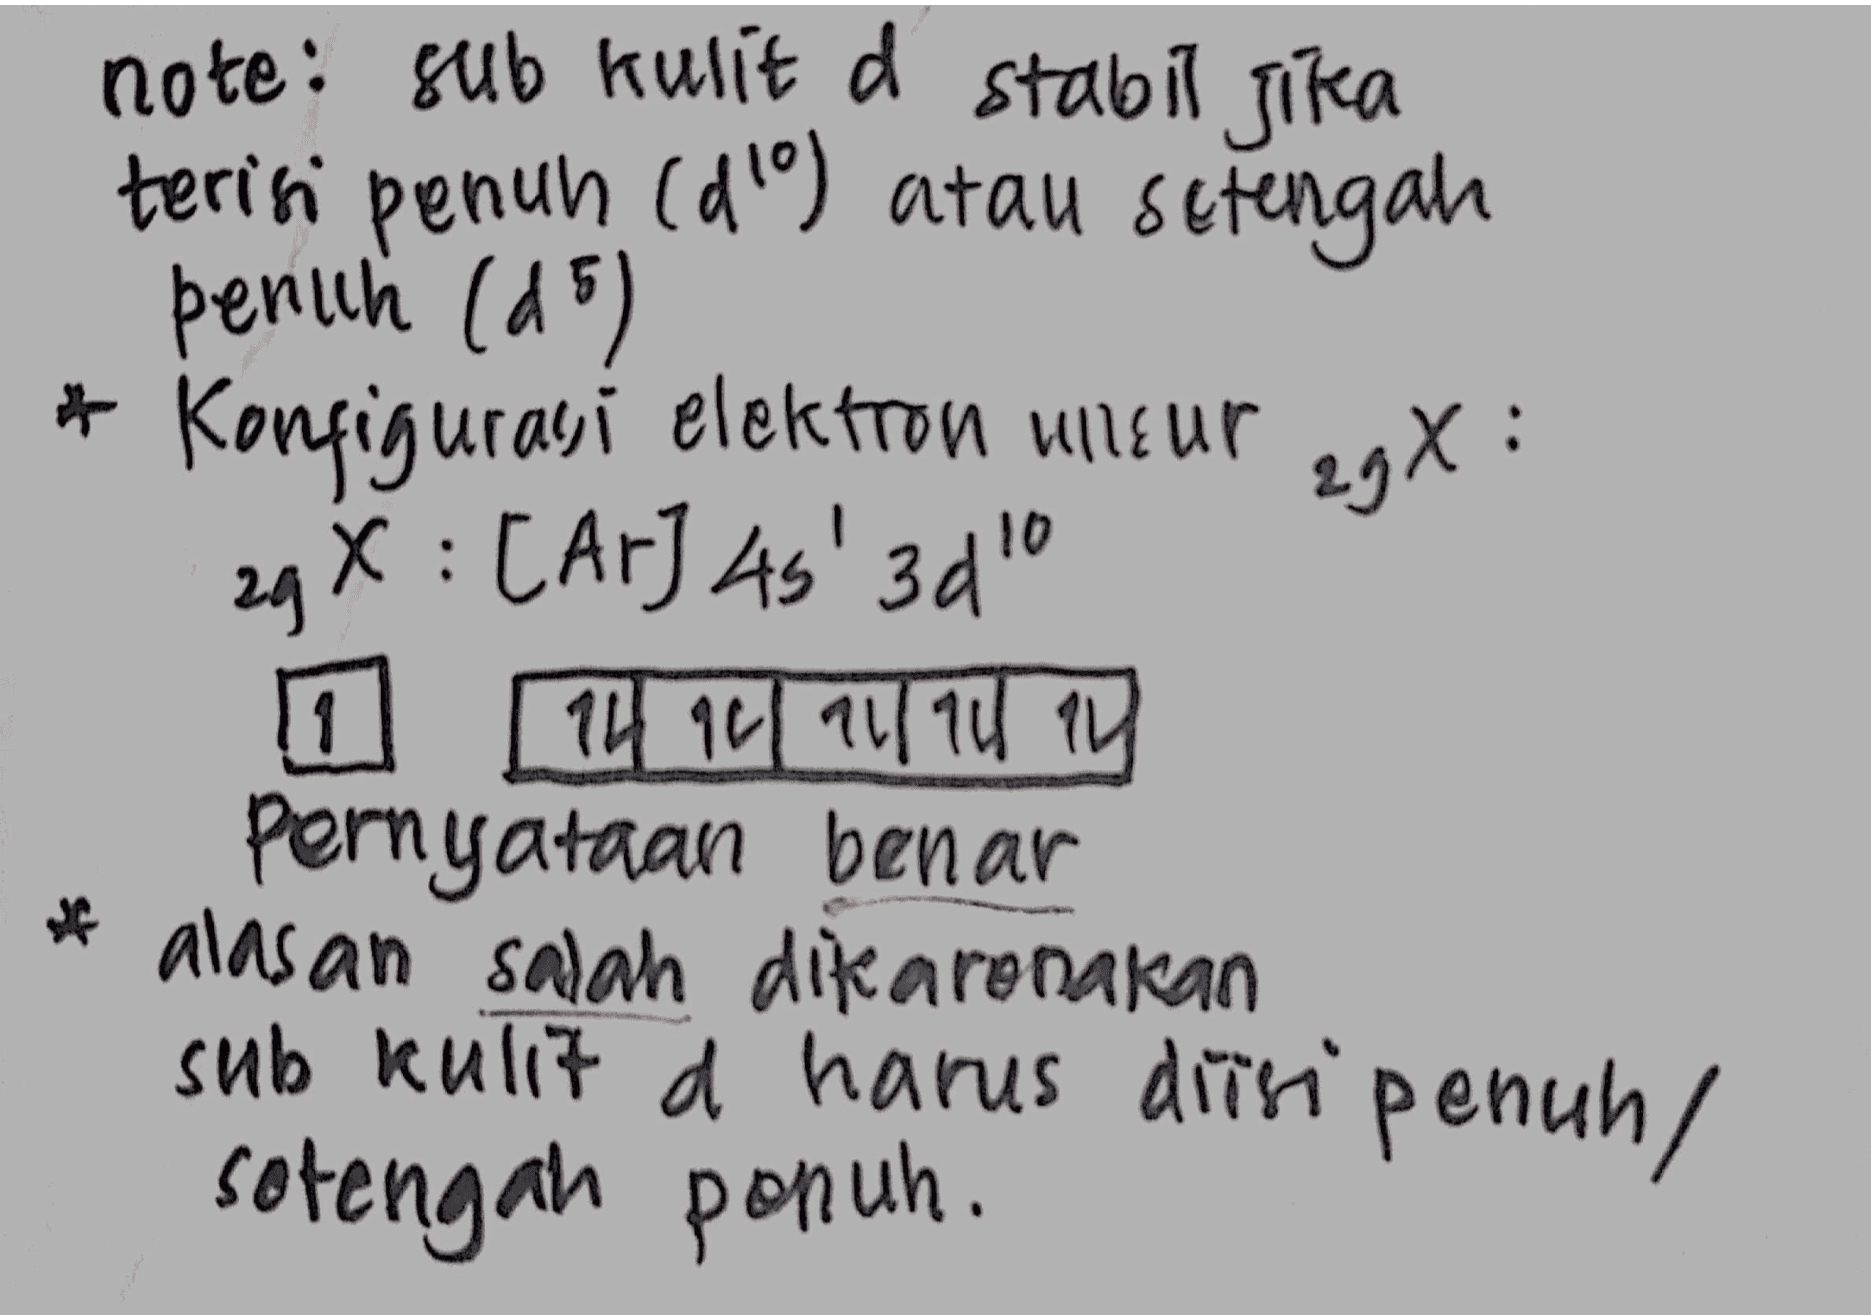 note: sub kulit d stabil jika
terisi penuh (d¹⁰) atau setengah
penuh (d⁵)
* Konfigurasi elektron unsur ₂₉X :
₂₉X : [Ar] 4s¹ 3d¹⁰
1 1L 1L 1L 1L 1L
Pernyataan benar
* alasan salah dikarenakan
sub kulit d harus diisi penuh/
setengah penuh.